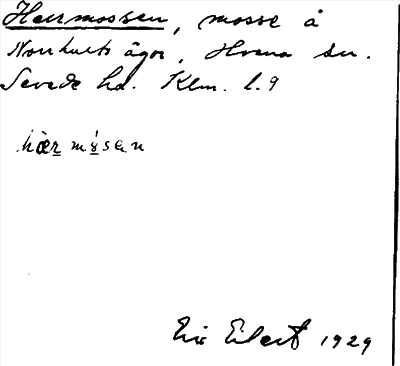 Herrmossen, mosse å
Norrhults ägor, Hvena sn.
Sevede hd. Klm. l. 9
hær mósen
Eric Eilert 1929